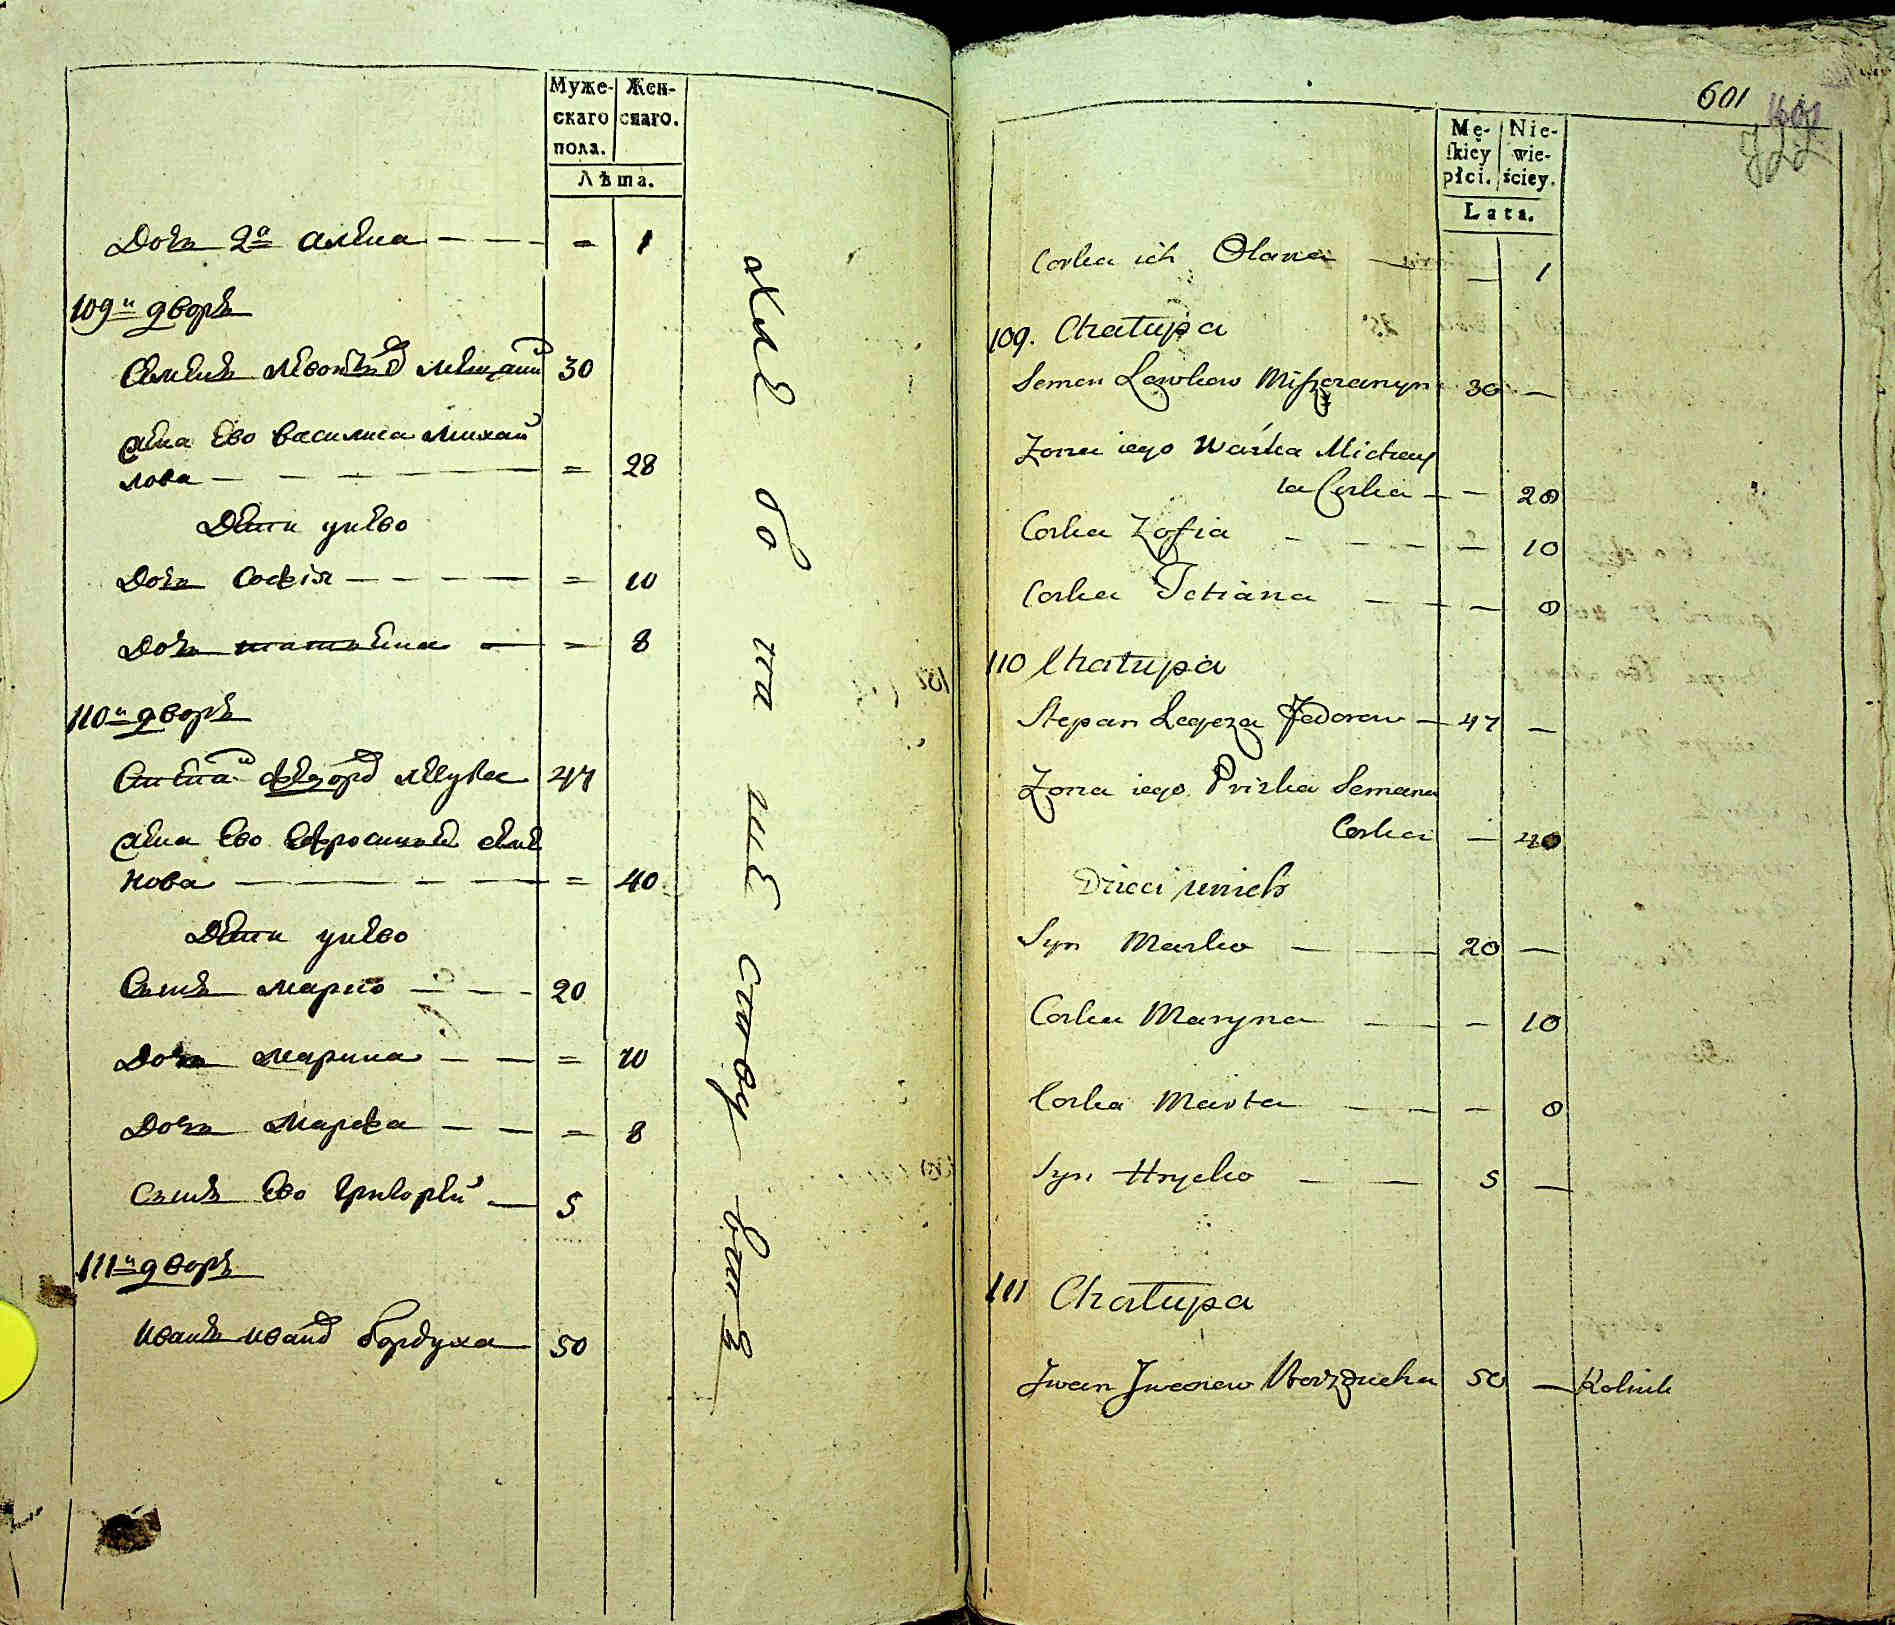 Муже-
скаго
пола.
Жен-
скаго.
Лѣта.
Дочь 2я Алена — — — = 1
109й дворъ
Семенъ Левковъ Мещани 30
Жена Ево Василиса Михай
лова — — — — = 28
Дети унево
Дочь Софія — — — — = 10
Дочь Татьяна — = 8
110й дворъ
Степа Федоровъ 47
Жена Ево Ефросиния Семе
нова — — — = 40
Дети унево
Сынъ Марко — — — 20
Дочь Марина — — = 10
Дочь Марфа — — = 8
Сынъ Ево Григорей — 5
111й дворъ
Иванъ Ивановъ Бордуха 50
601
Mę-
skiey
płci.
Nie-
wie-
ściey.
Lata.
Corka ich Olana — — 1
109. Chałupa
Semen Lewkow Miszczanyn 30 —
Żona iego Waśka Michay
ła Corka — — 28
Corka Zofia — — — — 10
Corka Tetiana — — — 8
110 Chałupa
Stepan Legeza Fedorow — 47 —
Żona iego Priska Semena
Corka — 40
Dzieci unich
Syn Marko — — 20 —
Corka Maryna — — — 10
Corka Marta — — — 8
Syn Hryćko — — 5 —
111 Chałupa
Iwan Iwanow Borzducha 50 — Rolnik